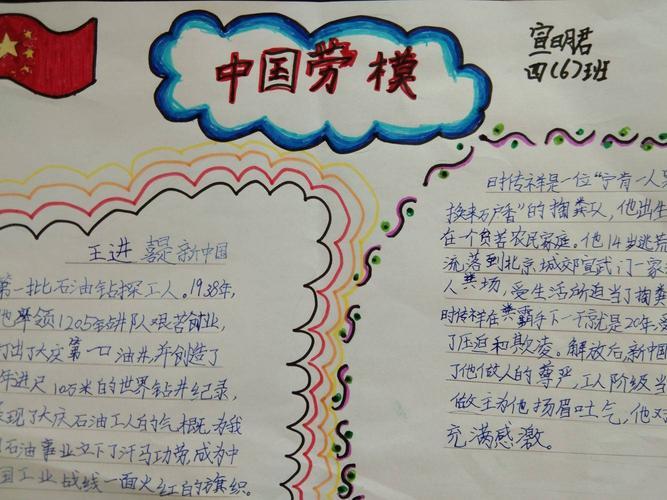 中国劳模
宣明君
四(6)班
王进喜是新中国
第一批石油钻探工人。1938年,
他率领1205钻井队艰苦创业,
打出了大庆第一口油井,并创造了
年进尺10万米的世界钻井纪录,
展现了大庆石油工人的气概,为我
国石油事业立下了汗马功劳,成为中
国工业战线一面火红的旗织。
时传祥是一位“宁肯一人
换来万户香”的掏粪工,他出生
在一个贫苦农民家庭。他14岁逃荒
流落到北京城郊宣武门一家
人粪场,受生活所迫当了掏粪
时传祥在粪霸手下一干就是20年,受
了压迫和欺凌。解放后,新中国
了他做人的尊严,工人阶级当
做主为他扬眉吐气,他对
充满感激。